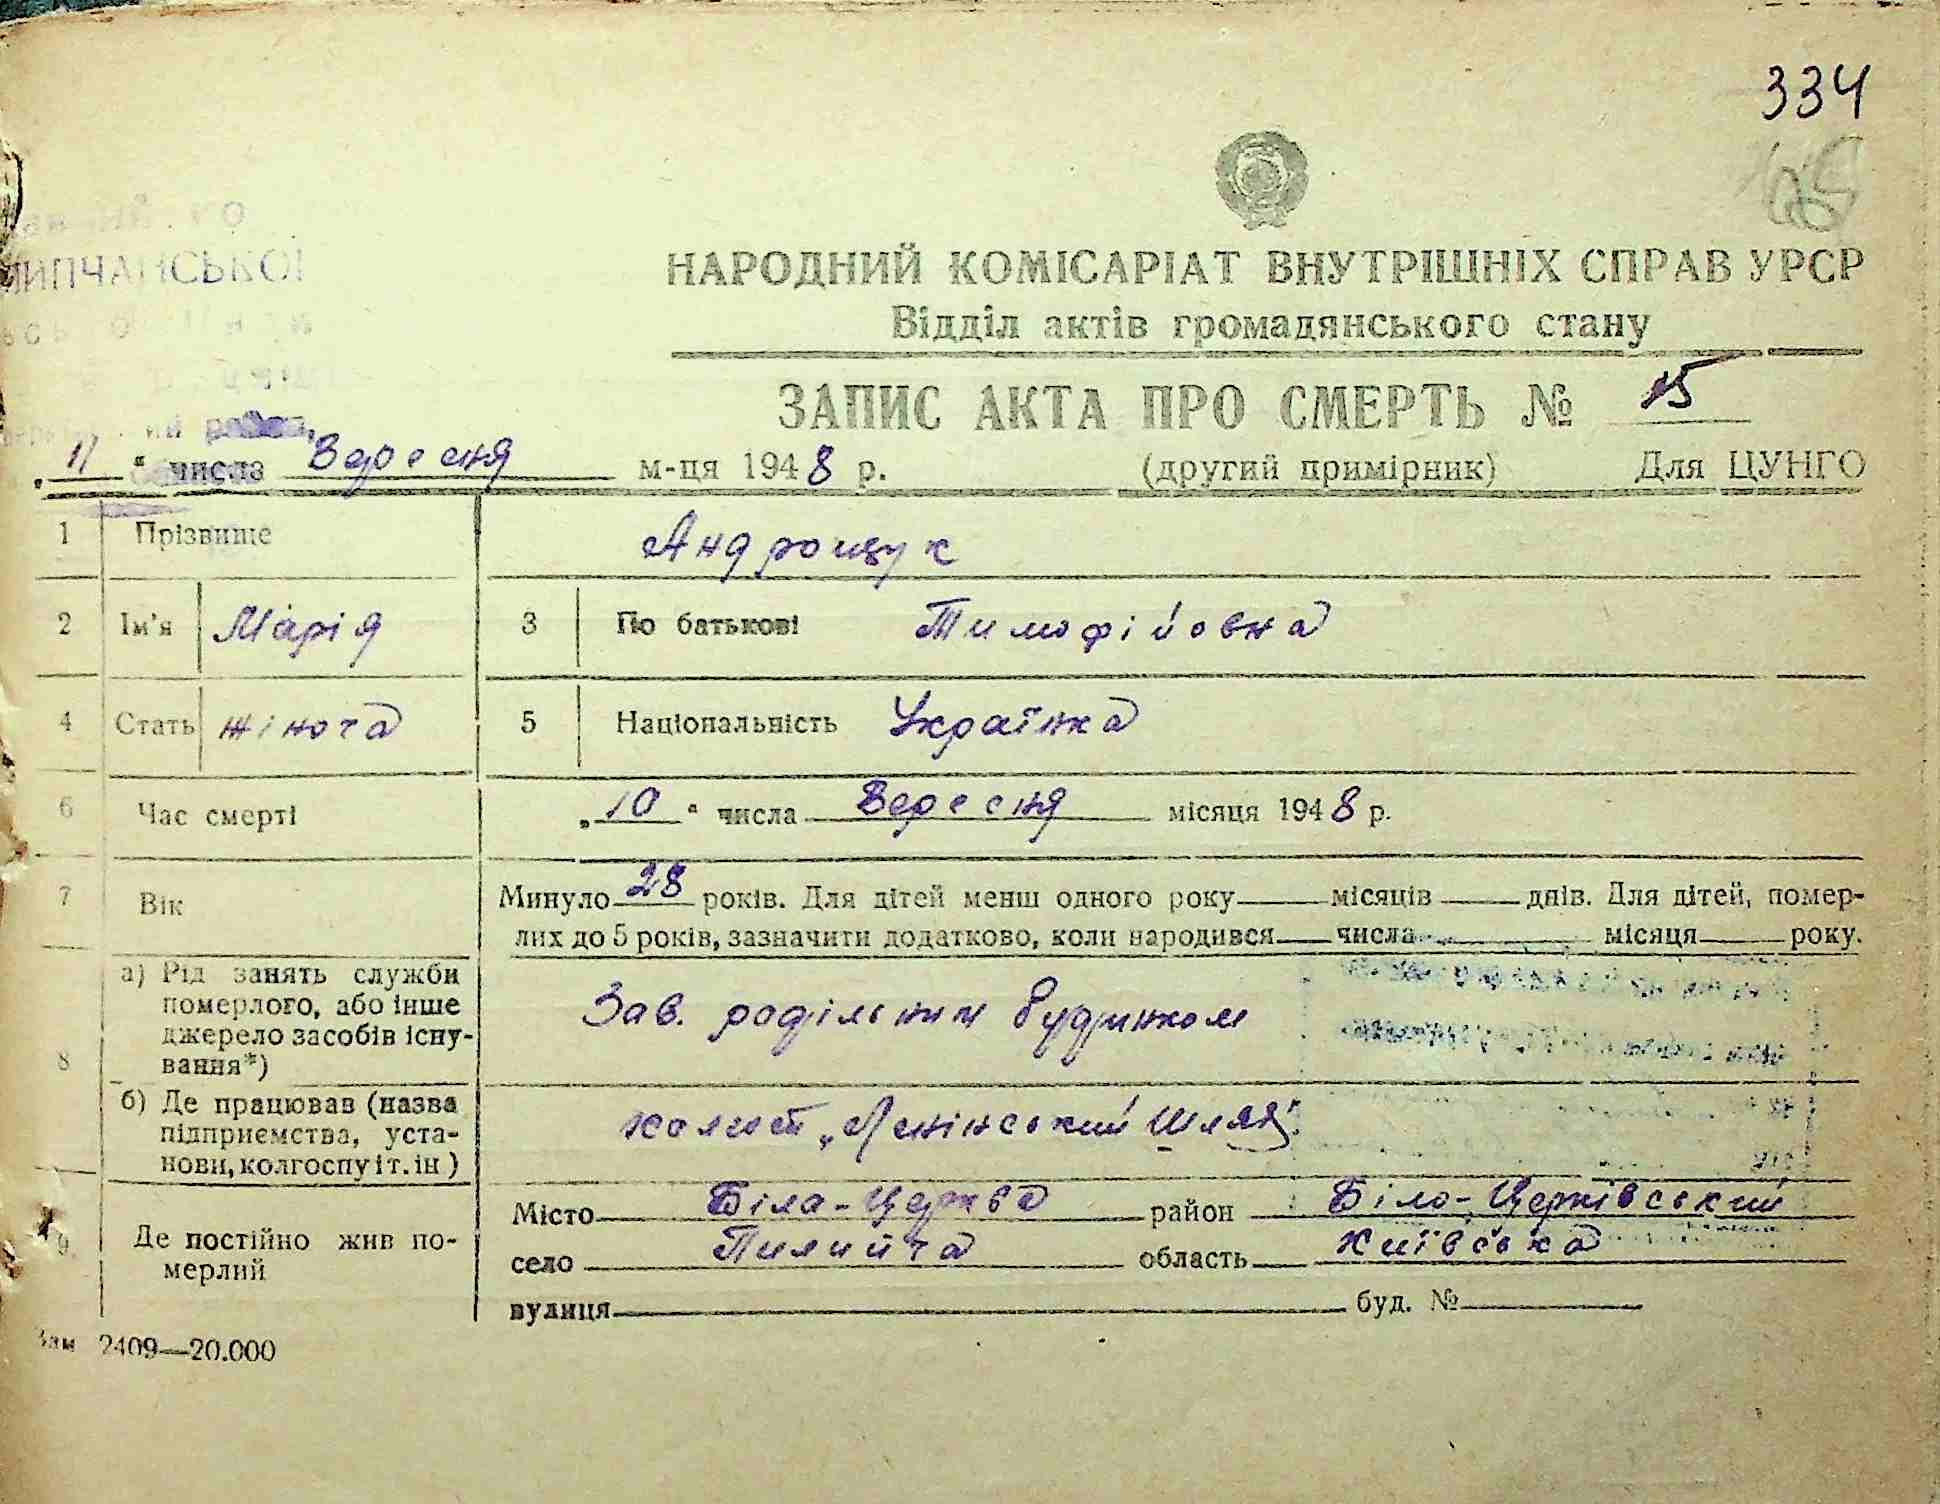 334
НАРОДНИЙ КОМІСАРІАТ ВНУТРІШНІХ СПРАВ УРСР
Відділ актів громадянського стану
ЗАПИС АКТА ПРО СМЕРТЬ № 15
„11“ числа Вересня м-ця 1948 р. (другий примірник) Для ЦУНГО
1 Прізвище Андрощук
2 Ім'я Марія 3 По батькові Тимофійовна
4 Стать жіноча 5 Національність Українка
6 Час смерті „10“ числа Вересня місяця 1948 р.
7 Вік Минуло 28 років. Для дітей менш одного року місяців днів. Для дітей, помер-
лих до 5 років, зазначити додатково, коли народився числа місяця року.
8 а) Рід занять служби
померлого, або інше
джерело засобів існу-
вання*)
Зав. родільним будинком
б) Де працював (назва
підприємства, уста-
нови, колгоспу і т. ін)
колгосп „Ленінський шлях"
9 Де постійно жив по-
мерлий
Місто Біла-Церква район Біло-Церківський
село Пилипча область Київська
вулиця буд. №
Зам 2409—20.000